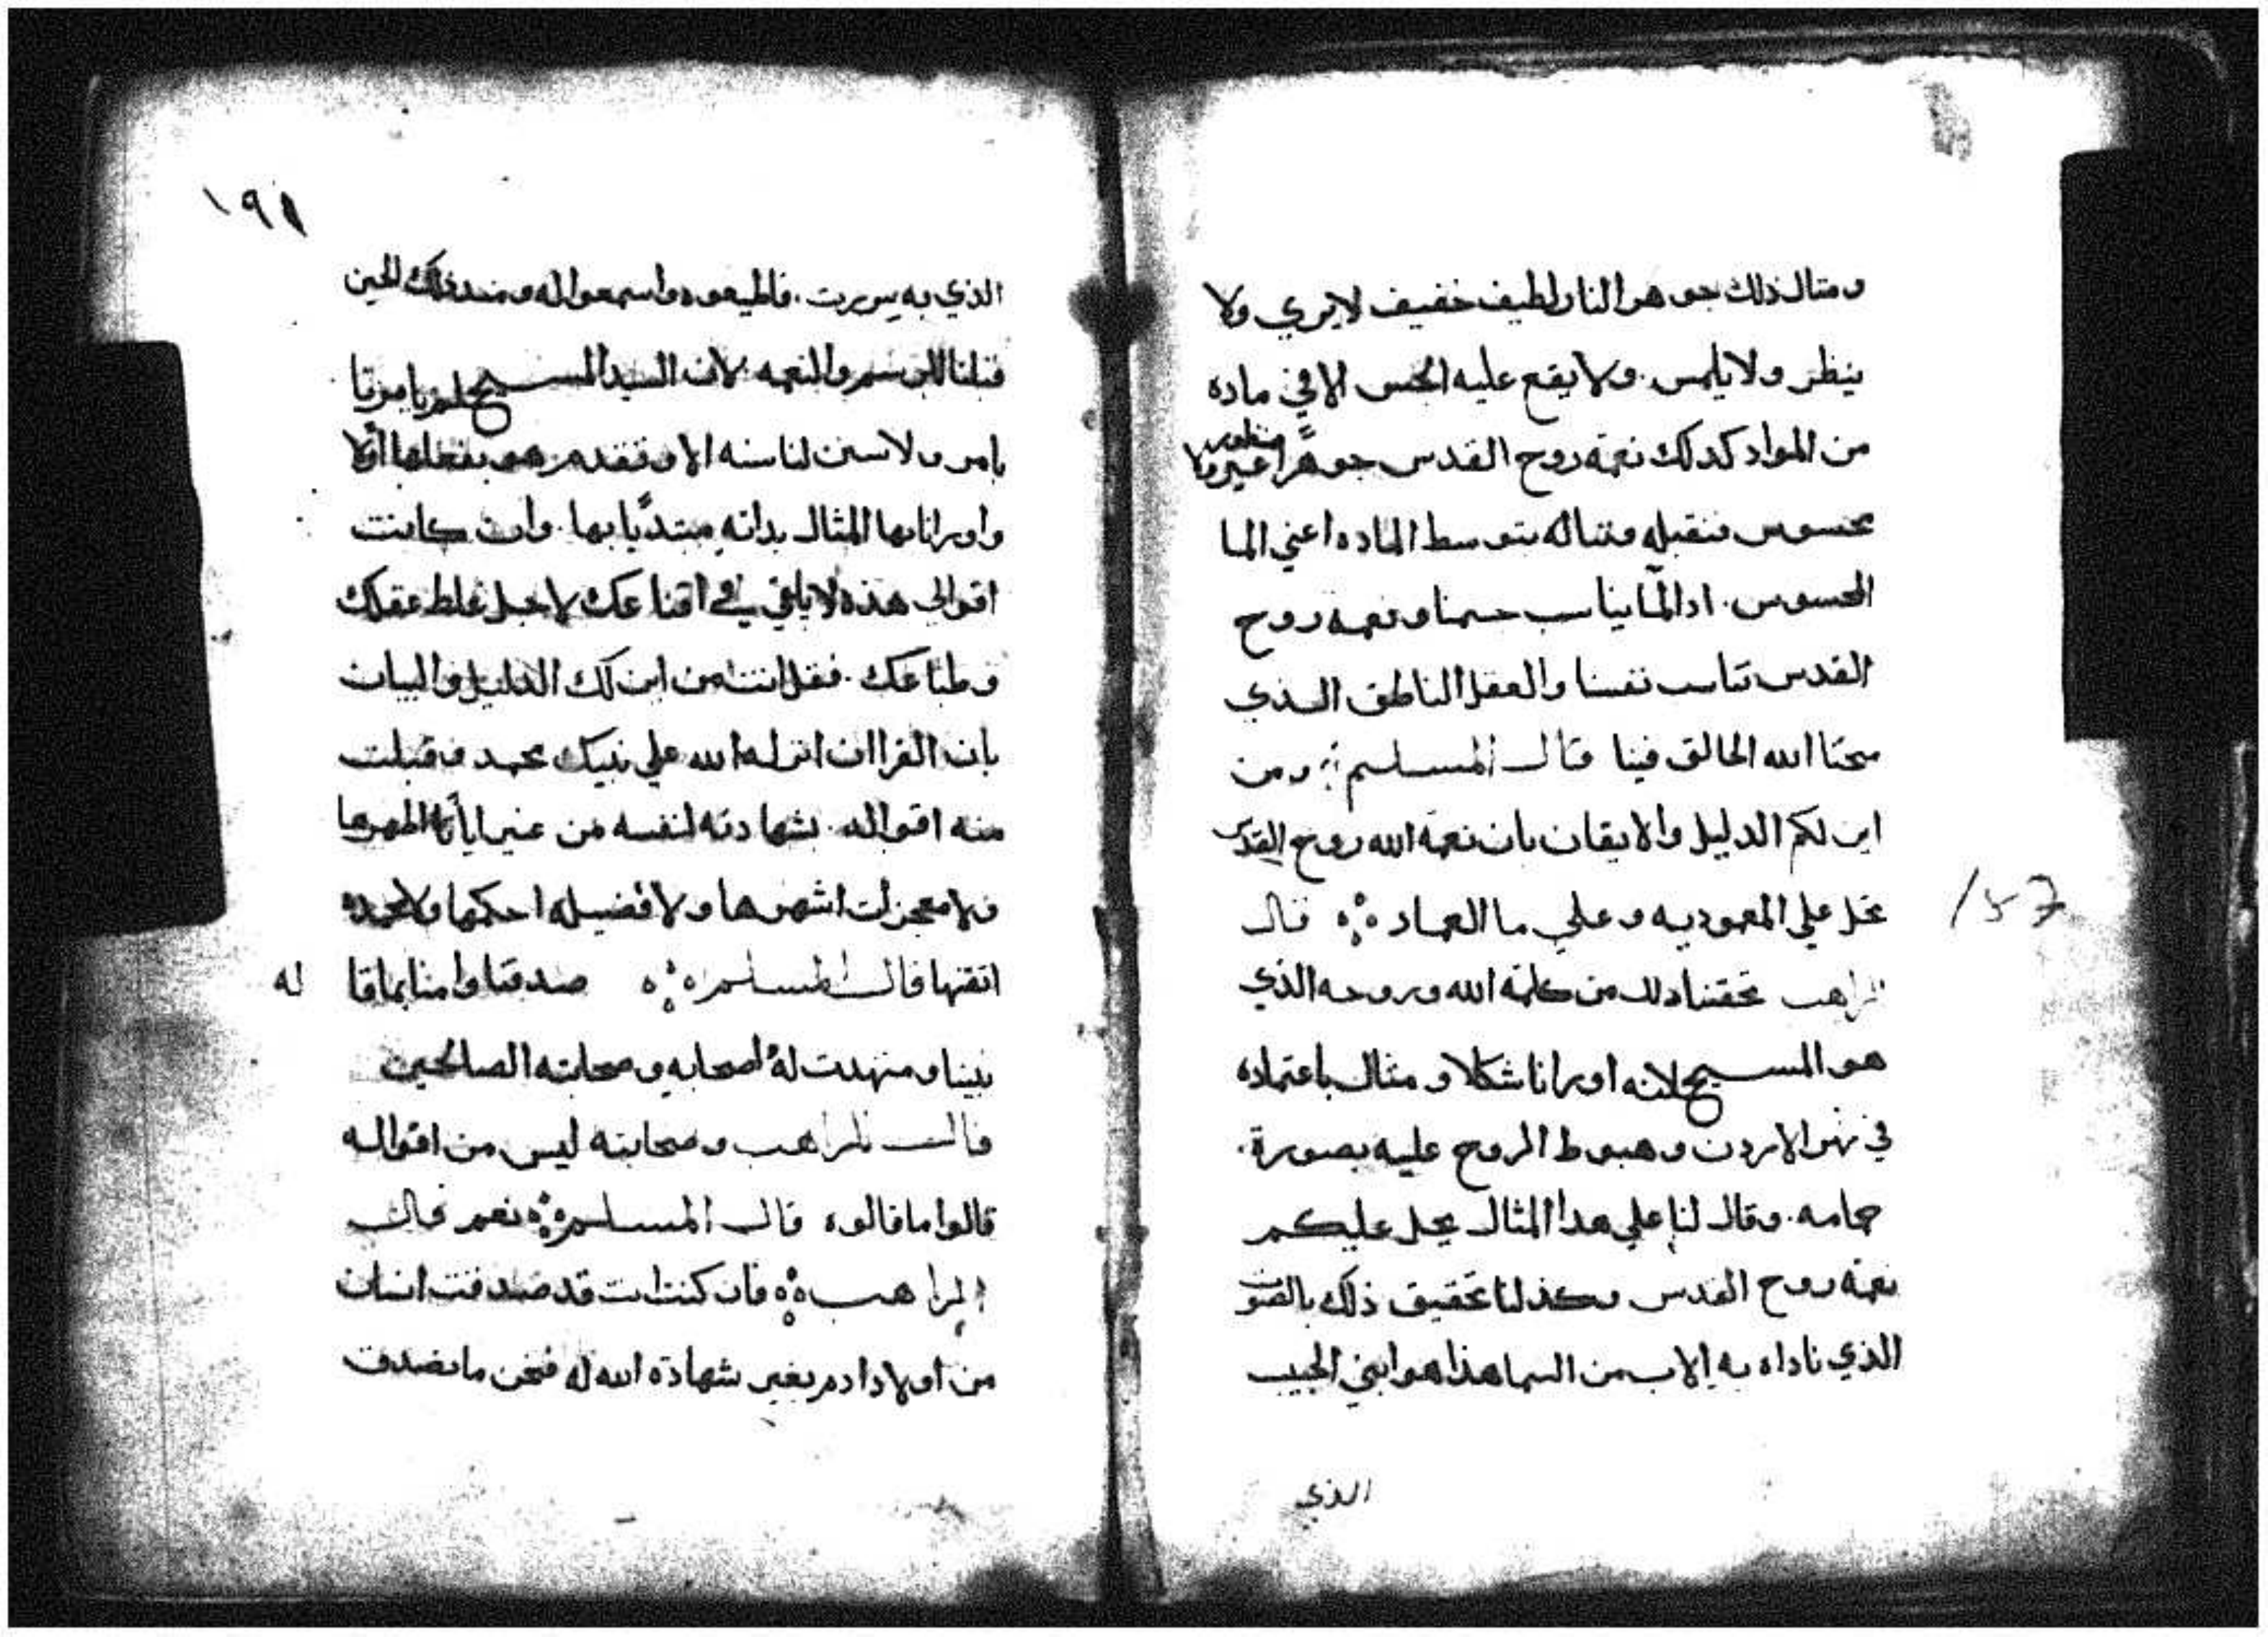 ومثال ذلك جوهر النار لطيف خفيف لا يري ولا
ينظر ولا يلمس. ولا يقع عليه الحس الا في ماده
من المواد كدلك نعمة روح القدس جوهراً غير منظور ولا
محسوس فنقبله ونناله بتوسط الماده اعني الما
المحسوس. اد الما يناسب جسمنا ونعمه روح
القدس تناسب نفسنا والعقل الناطق الذي
الله الخالق فينا قال المسلم ومن
اين لكم الدليل والايقان بان نعمة الله روح القدس
تحل علي المعموديه وعلي ما العماد قال
الراهب تحققنا دلك من كلمة الله وروحه الذي
هو المسيح لانه اورانا شكلا ومثال باعتماده
في نهر الاردن وهبوط الروح عليه بصورة.
حمامه. وقال لنا علي هدا المثال يحل عليكم
نعمة روح القدس وكد لنا تحقيق ذلك بالصوت
الذي ناداه به الاب من السما هذا هو ابني الحبيب
الذي
157
١٩١
الذي به سررت. فاطيعوه واسمعوا له ومند ذلك الحين
قبلنا والنعمه لان السيد المسيح لم يامرنا
بامر ولا سن لنا سنه الا وتقدم هو بفعلها أولا
واورانا بها المثال بداته مبتديًا بها. وان كانت
اقوالي هذه لا في اقناعك لاجل غلط عقلك
وطباعك. فقل انت من اين لك الدليل والبيان
بان القراان انزله الله علي نبيك محمد وقبلت
منه اقواله. بشهادته لنفسه من غير اظهرها
ولا معجزات اشهرها ولا فضيله احكمها
اتقنها قال المسلم صدقنا وامنا بما قا له
نبينا وشهدت له اصحابه وصحابته الصالحين
قال الراهب وصحابته ليس من اقواله
قالوا ما قالوه قال المسلم نعم قال
الراهب فان كنت انت قد صدقت انسان
من اولاد ادم بغير شهادة الله له فنحن ما نصدق